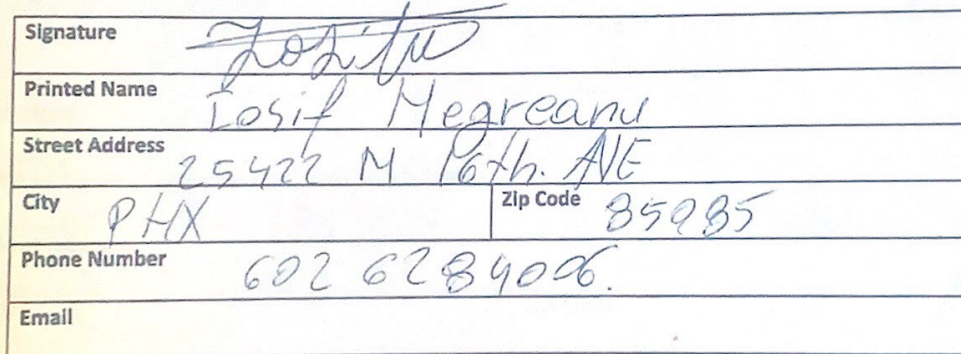 Signature
Printed Name Iosif Megreanu
Street Address 25422 N 16th. AVE
City PHX Zip Code 85085
Phone Number 602 628 4006.
Email